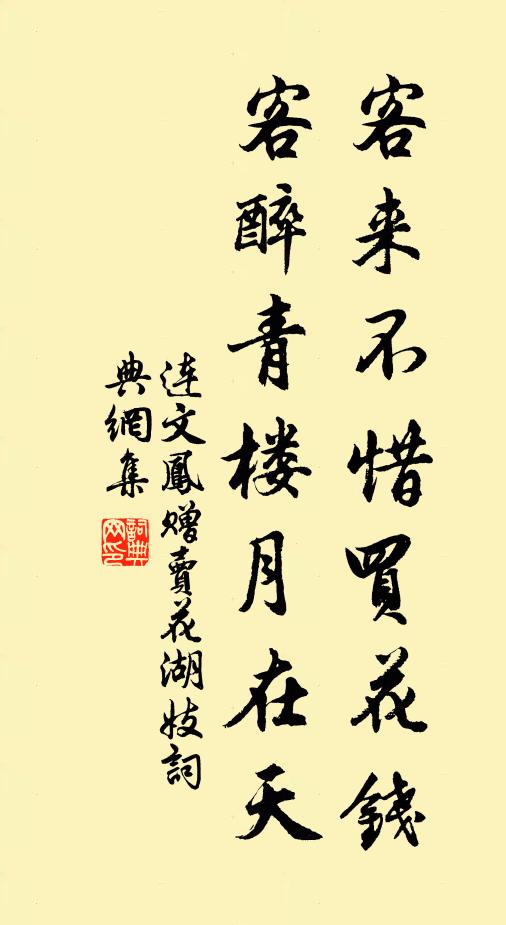 客来不惜買花錢
客醉青楼月在天
連文鳳贈賣花湖妓詞
典網集
詞典
网印